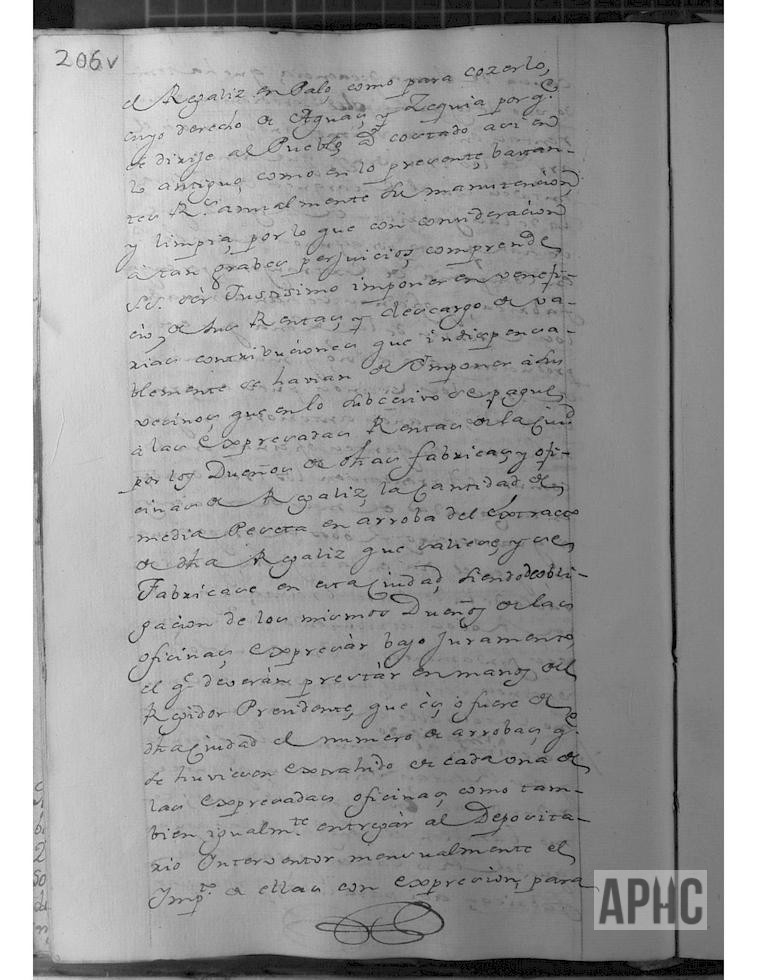 206v
el Regaliz en Palo, como para cozerlo,
cuyo derecho de Aguas, y Zequia por q.e
se dirije al Pueblo, costado asi en
lo antiguo, como en lo presente, bastan-
tes R.s anualmente su manutencion,
y limpia, por lo que con consideracion
à tan grabes perjuicios, comprende
ser Justisimo imponer en venefi-
cio, de sus Rentas, y descargo, de va-
rias contribuciones que indispensa-
blemente se havian de imponer à sus
vecinos, que en lo subcesivo se pague,
à las expresadas Rentas de la Ciud.
por los Dueños de dhas fabricas, y ofi-
cinas de Regaliz, la Cantidad de
media Peseta en arroba del extracto
de dha Regaliz que saliese, y se
Fabricase en esta Ciudad, siendo de obli-
gacion de los mismos Dueños de las
oficinas, expresàr bajo Juramento,
el q.e deveràn prestàr en manos del
Regidor Presidente, que ès, ò fuere de
dha Ciudad el numero de arrobas, q.e
se huviesen extrahido de cada una de
las expresadas oficinas, como tam-
bien igualm.te entregàr al Deposita-
rio Interventor mensualmente el
Imp.te de ellas con expresion, para
APHC